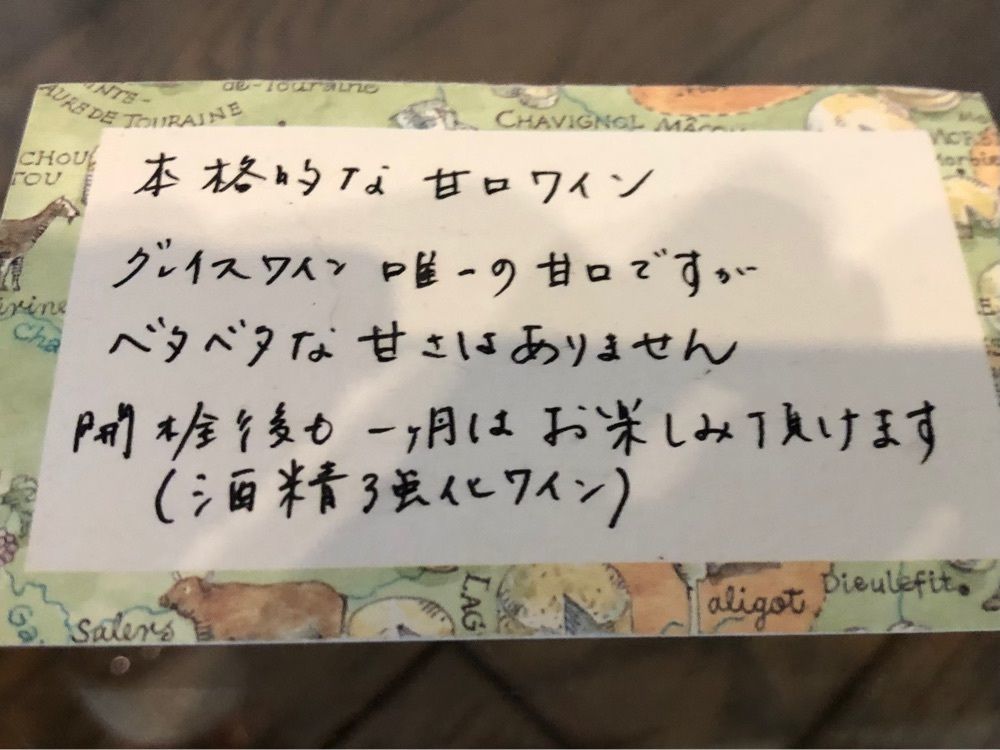 de-Touraine
AURE DE TOURAINE
CHAVIGNOL MÂCON
CHOU
TOU
本格的な甘口ワイン
グレイスワイン 唯一の甘口ですが
ベタベタな甘さはありません
開栓後も一ヶ月はお楽しみ頂けます
(酒精強化ワイン)
Salers
aligot
Dieulefit.